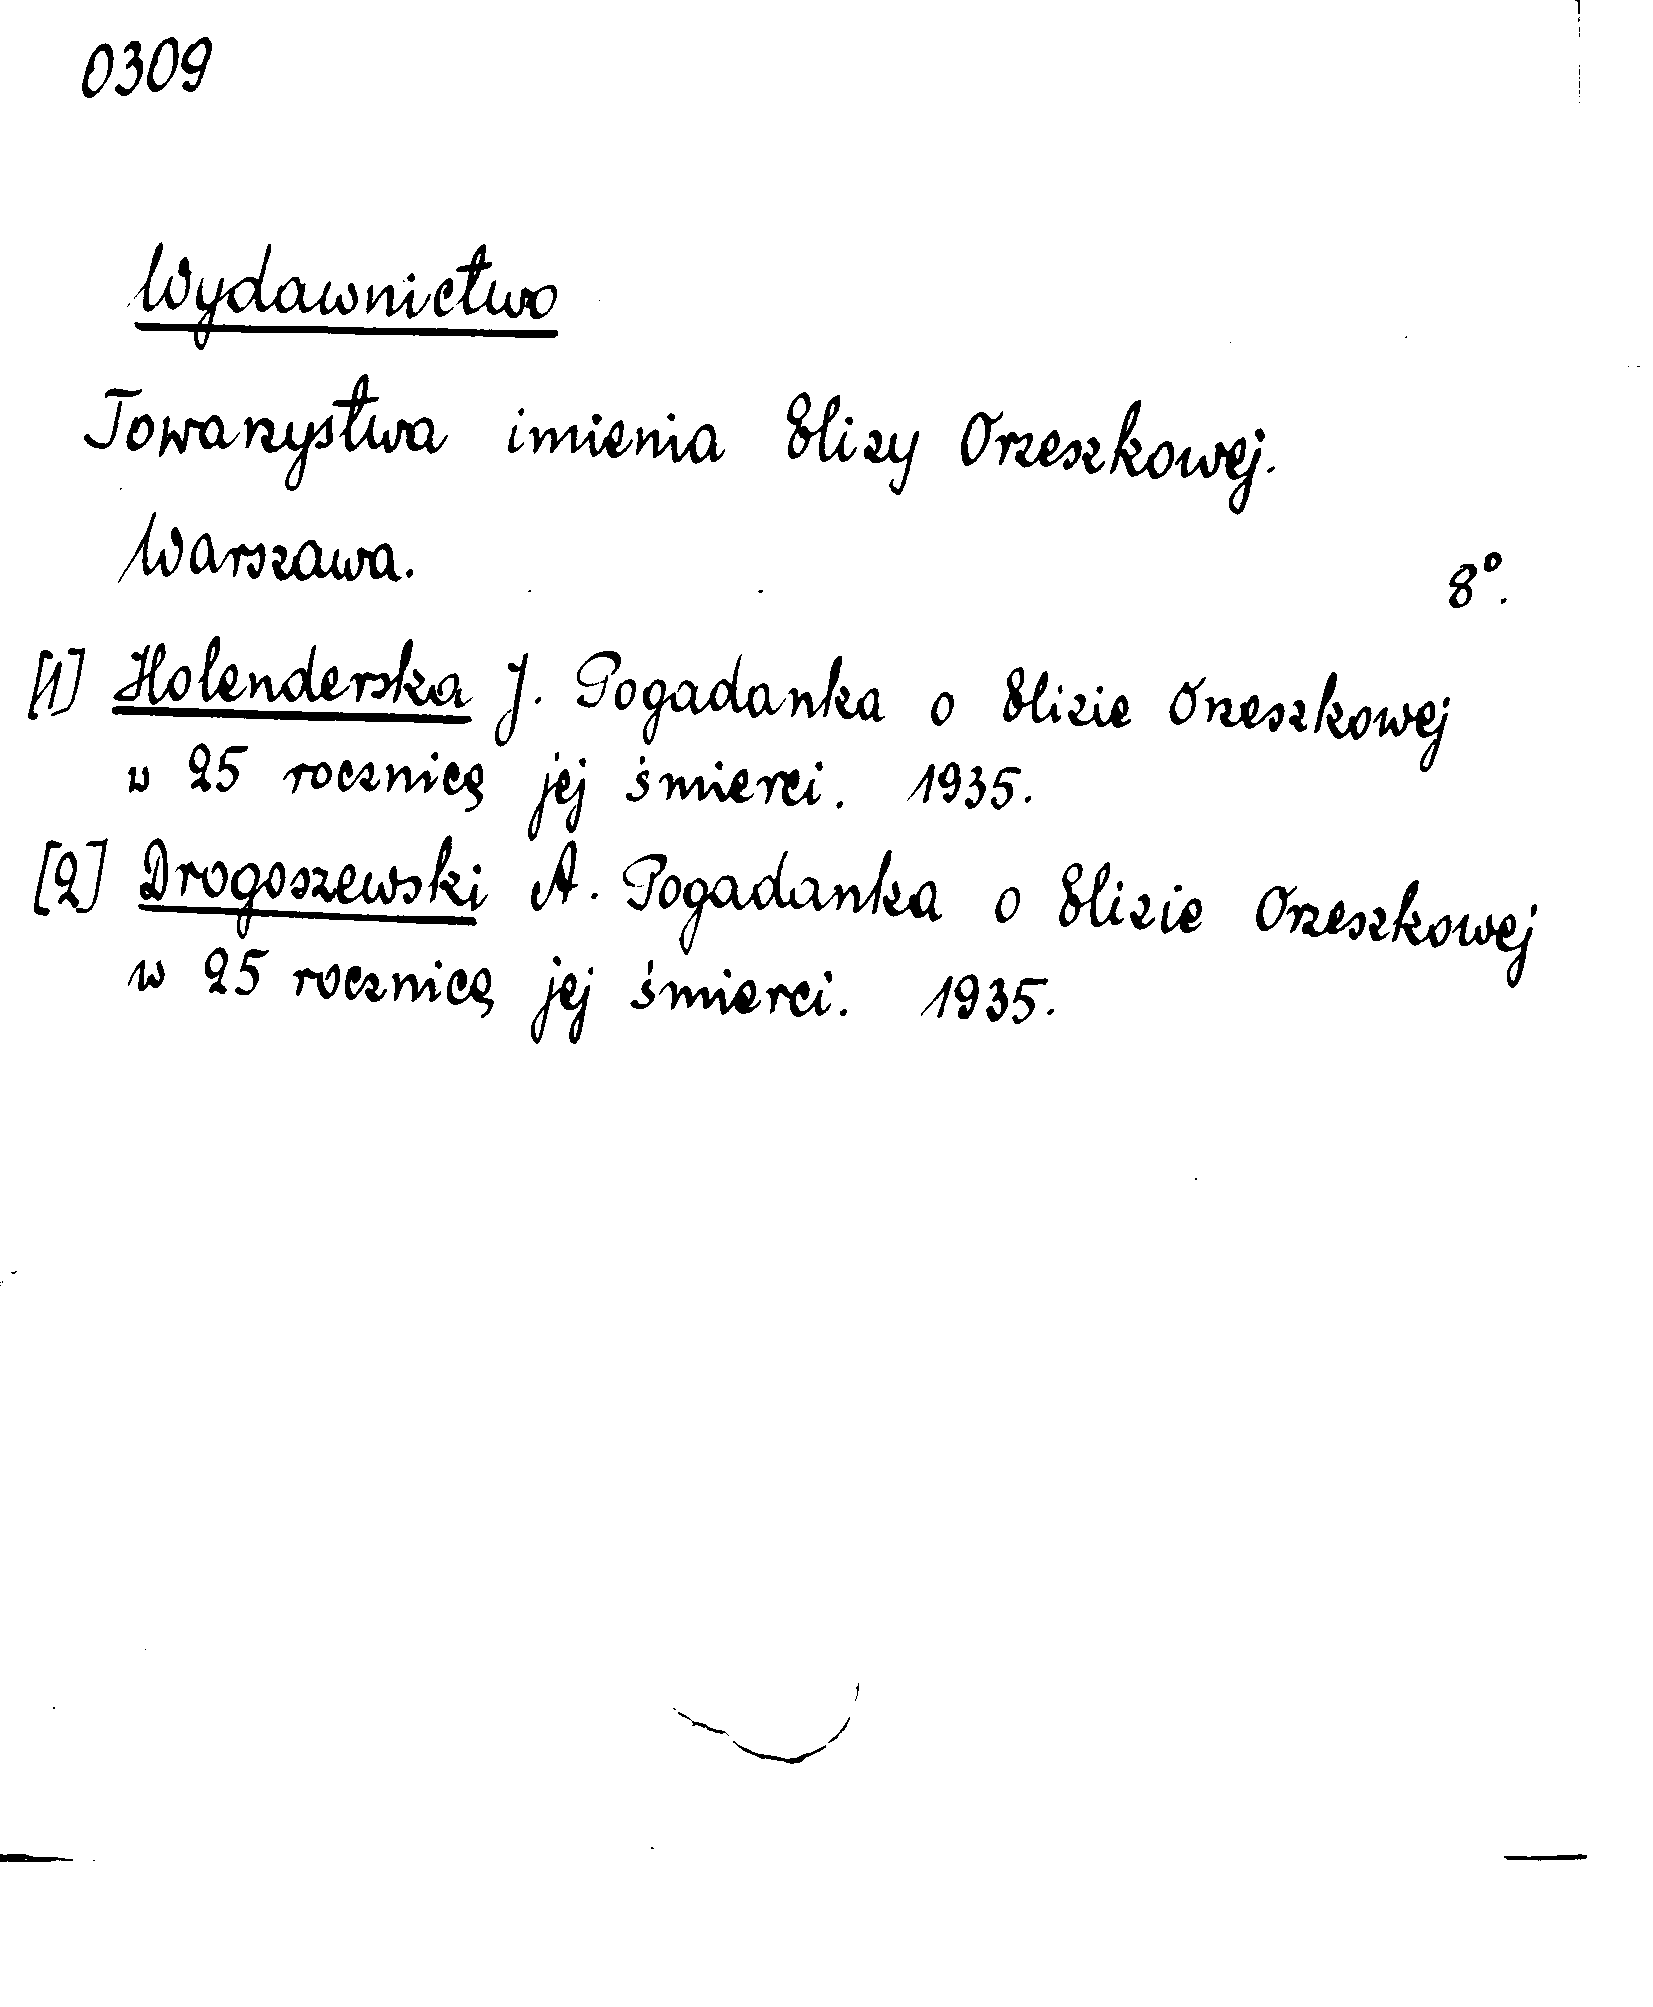 0309
Wydawnictwo
Towarzystwa imienia Elizy Orzeszkowej.
Warszawa. 8°.
[1] Holenderska J. Pogadanka o Elizie Orzeszkowej
w 25 rocznicę jej śmierci. 1935.
[2] Drogoszewski A. Pogadanka o Elizie Orzeszkowej
w 25 rocznicę jej śmierci. 1935.